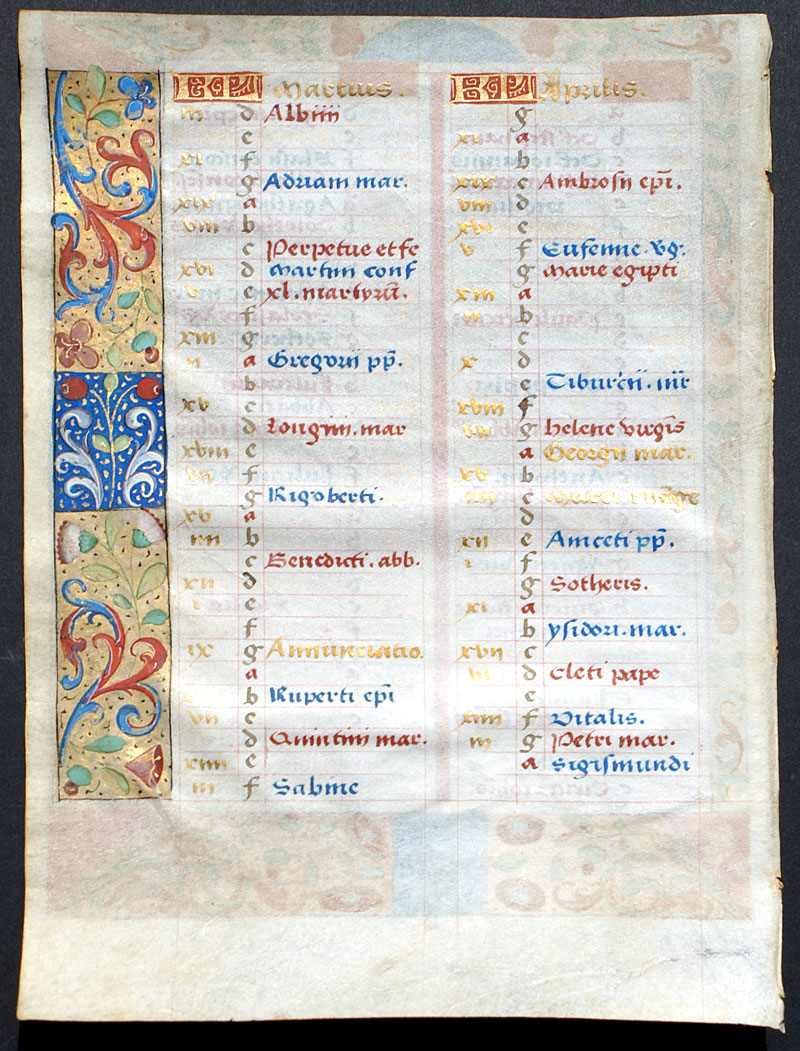 Martius.
iii d Albini
e
xi f
g Adriani mar.
xix a
viii b
c Perpetue et fe
xvi d Martini conf
v e xl. martyrū.
f
xiii g
ii a Gregorii pp̄.
b
xv c
d Longini. mar
xviii e
vii f
g Rigoberti.
xv a
iiii b
c Benedicti. abb.
xii d
i e
f
ix g Annunciatio.
a
b Ruperti ep̄i
vii c
d Quintini mar.
xiiii e
iii f Sabine
Aprilis.
g
xi a
b
xix c Ambrosii ep̄i.
viii d
xvi e
v f Eufemie. vg.
g Marie egipti
xiii a
ii b
c
x d
e Tiburcii. mr
xviii f
vii g helene virgīs
a Georgii mar.
xv b
iiii c Marci
d
xii e Aniceti pp̄.
i f
g Sotheris.
xi a
b ysidori. mar.
xvii c
vi d Cleti pape
e
xiiii f Vitalis.
iii g Petri mar.
a Sigismundi